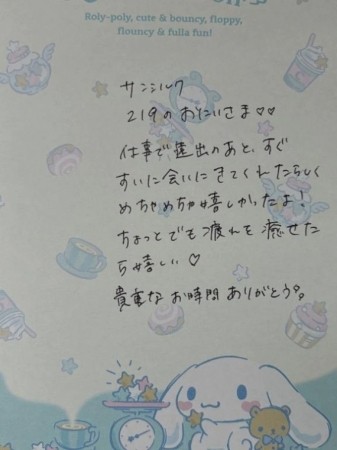 Roly-poly, cute & bouncy, floppy,
flouncy & fulla fun!
サンシルク
219のおにいさま♡♡
仕事で遠出のあと、すぐ
すいに会いにきてくれたらしく
めちゃめちゃ嬉しかったよ!
ちょっとでも疲れを癒せた
ら嬉しい♡
貴重なお時間ありがとう